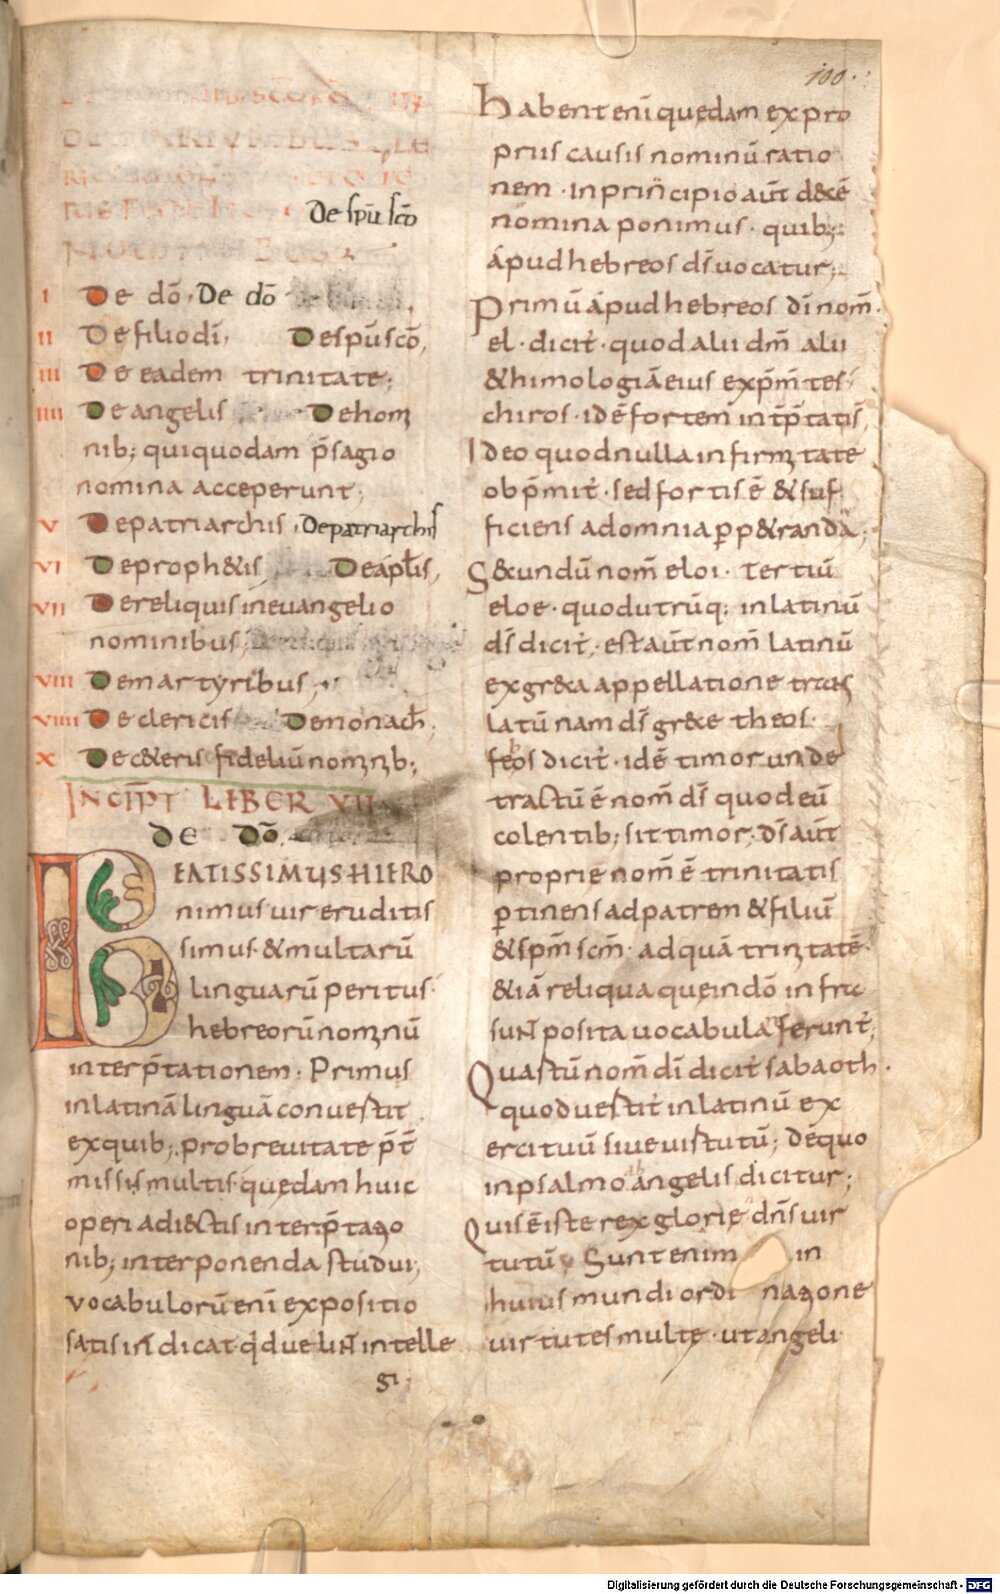 100.
De spu sco
I De dō, De dō
II De filio di, De spu sco,
III De eadem trinitate;
IIII De angelis De homi
nib; qui quodam p̄sagio
nomina acceperunt;
V De patriarchis, De patriarchis
VI De proph&is De apłis,
VII De reliquis in euangelio
nominibus;
VIII De martyribus;
VIIII De clericis De monach̄.
X De c&eris fidelium nominib;
INCIPT LIBER VII
DE DŌ.
BEATISSIMUS HIERO
nimus uir eruditis
simus & multarū
linguarū peritus
hebreorū nominū
interp̄tationem. Primus
in latinā linguā conuertit
ex quib; pro breuitate p̄t
missis multis quędam huic
operi adiectis interp̄tatio
nib; interponenda studui;
vocabulorū eni expositio
satis indicat qđ ue lint intelle
gi.
Habent eni quędam ex pro
priis causis nominū ratio
nem. in principio aūt d&ē
nomina ponimus. quib;
apud hebreos ds uocatur;
Primū apud hebreos di nom̄.
el. dicit. quod alii dm̄ alii
& himologiā eius exp̄mtes
chiros. id ē fortem int̄p̄tatis,
Ideo quod nulla infirmitate
obp̄mit. sed fortis ē & suf
ficiens ad omnia ꝑp&randā;
S&undū nom̄ eloi. Tertiū
eloe. quod utrūq; in latinū
ds dicit. est aūt nom̄ latinū
ex gr&ca appellatione trans
latū nam ds gr&ce theos.
feos dicit. id ē timor unde
tractū ē nom̄ ds quod eū
colentib; sit timor. ds aūt
proprie nom̄ ē trinitatis
ꝑtinens ad patrem & filiū
& spm̄ scm̄. ad quā trinitatē
&iā reliqua que in dō infra
sunt posita uocabula referunt;
Quartū nom̄ di dicit sabaoth.
quod uertit in latinū ex
ercituū siue uirtutū; de quo
in psalmo ab angelis dicitur;
Quis ē iste rex glorie dn̄s uir
tutū Sunt enim in
huius mundi ordinatione
uirtutes multę. ut angeli
Digitalisierung gefördert durch die Deutsche Forschungsgemeinschaft - DFG